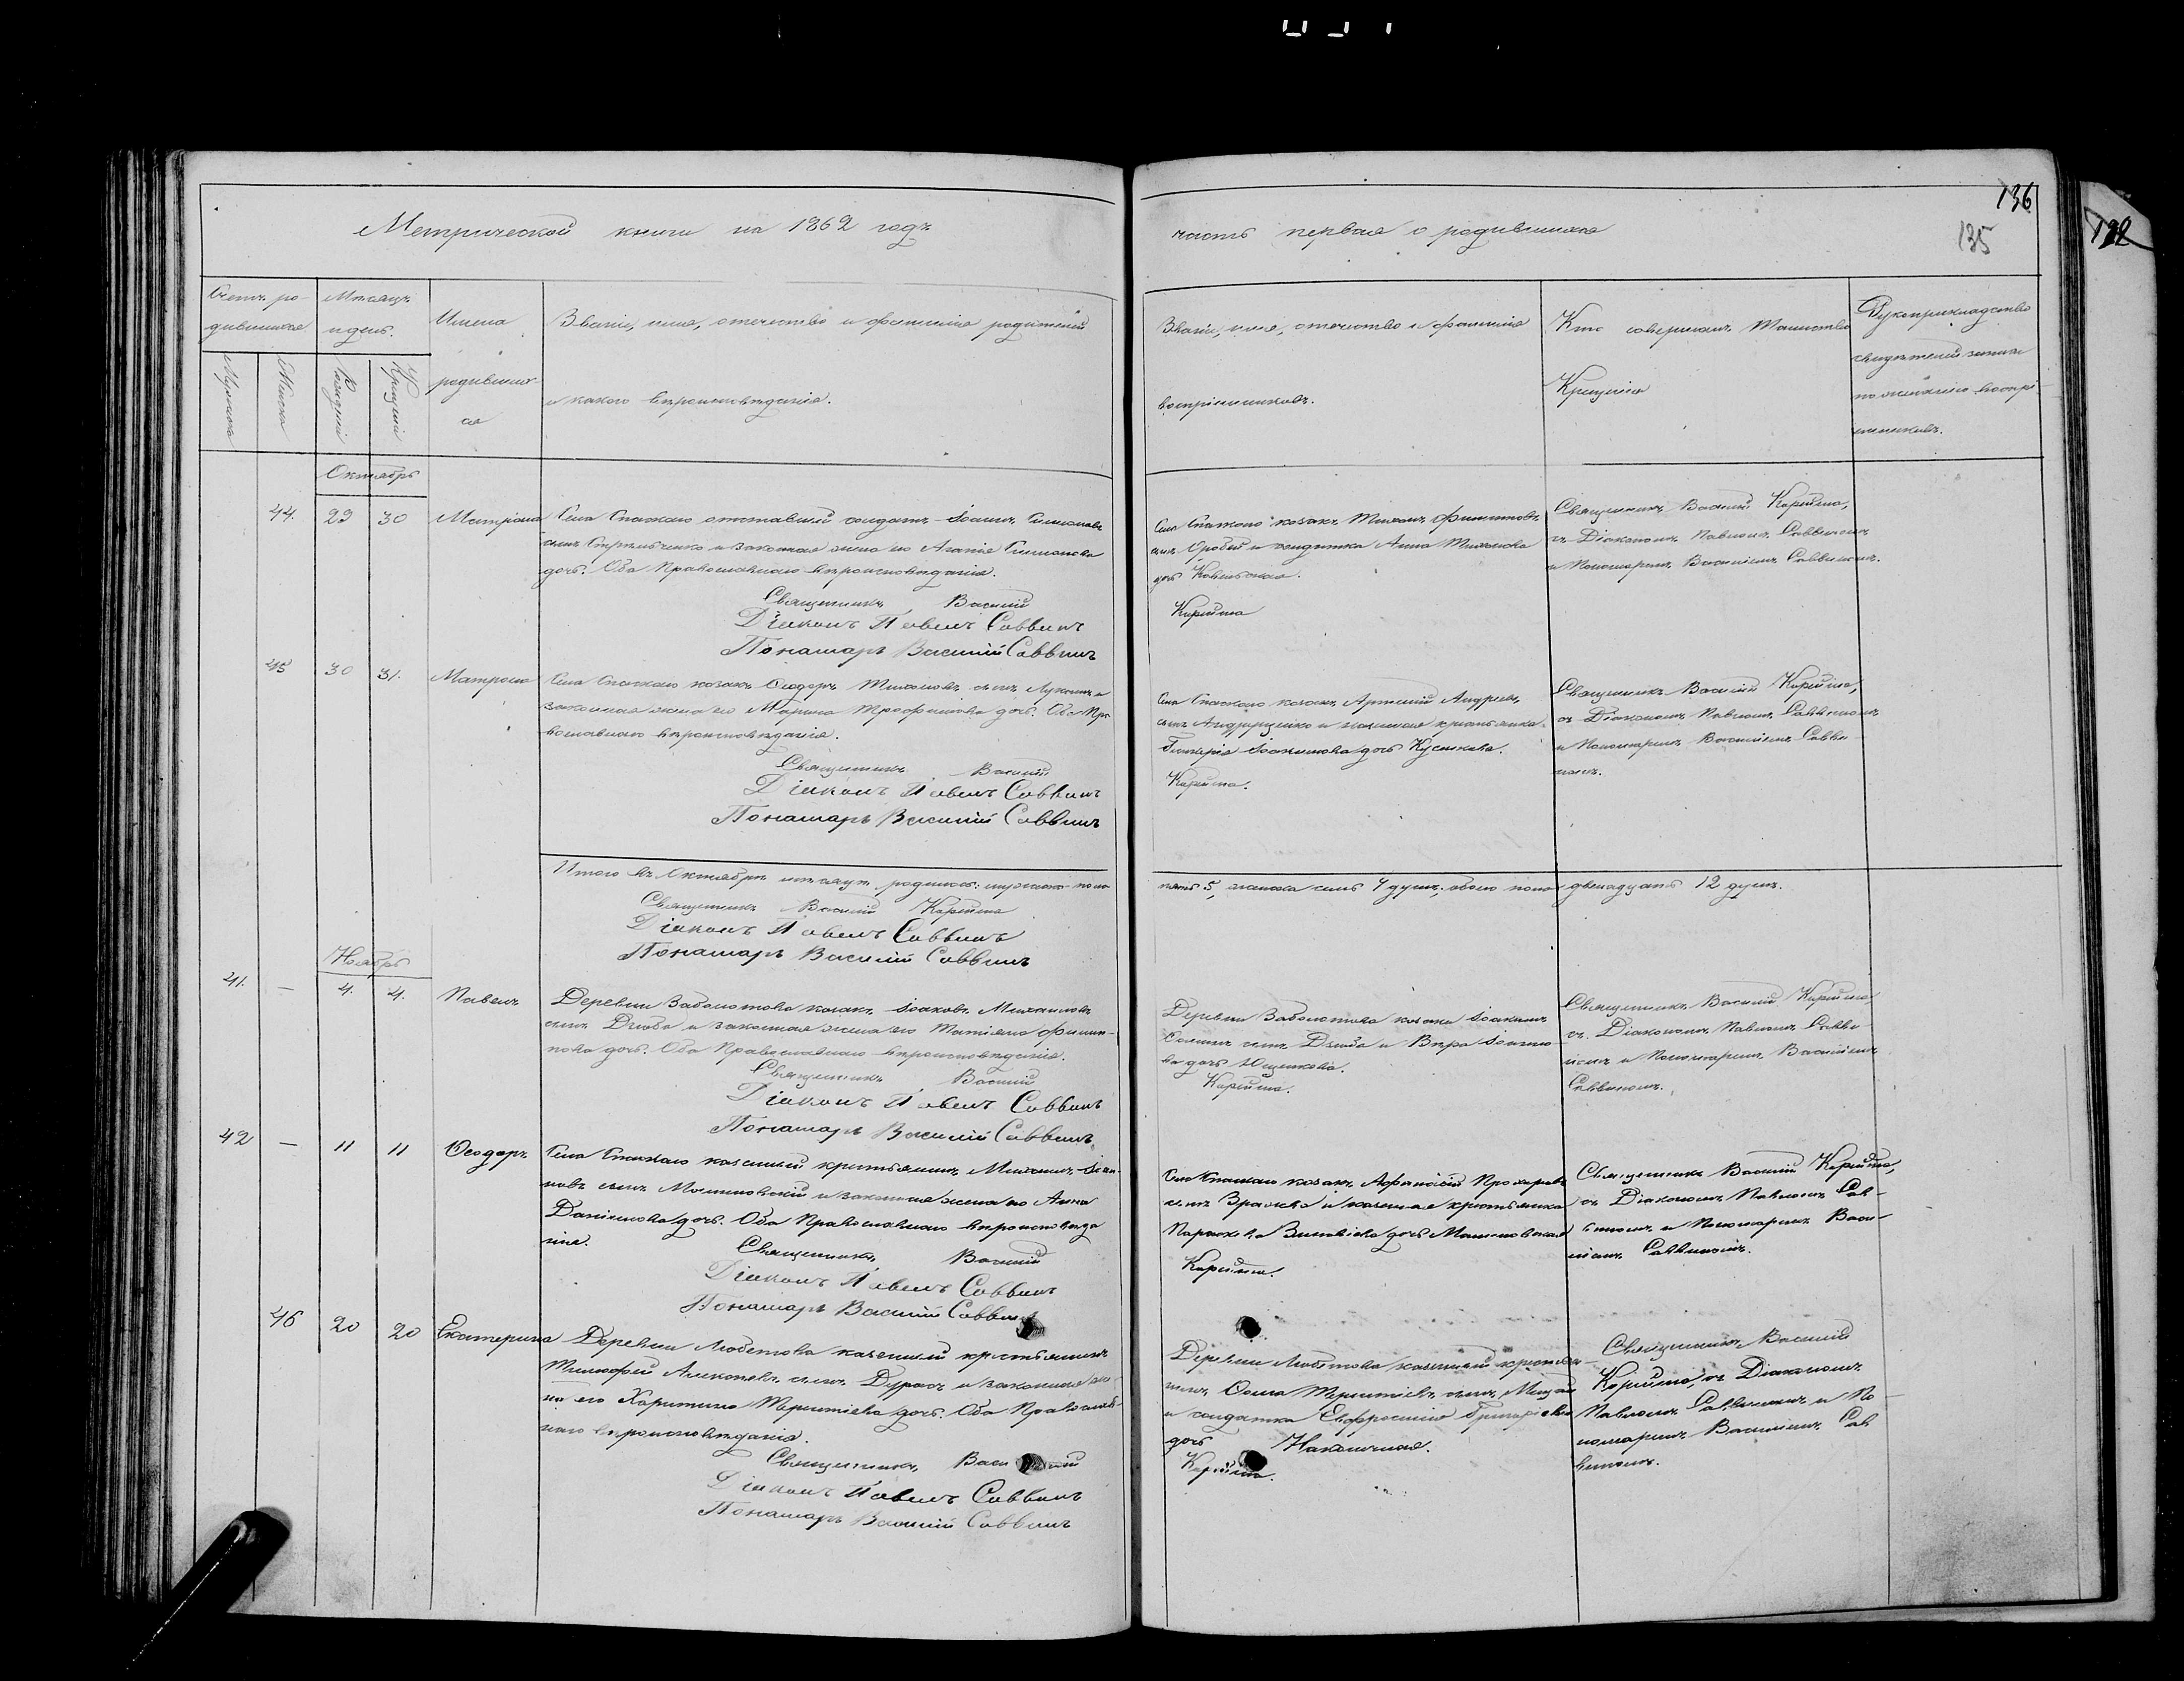 136
135
132
Метрической книги на 1862 годъ
часть первая о родившихся
Счетъ ро-
дившихся
Мѣсяцъ
и день.
Имена
родивших-
ся
Звание, имя, отчество и фамилія родителей
и какого вѣроисповѣданія.
Мужеска
Женска
Рожденія
Крещенія
Званіе, имя, отчество и фамилія
воспріемниковъ.
Кто совершалъ Таинство
Крещенія
Рукоприкладство
свидѣтелей записи
по желанію воспрі-
емниковъ.
Октябрь
44. 29 30 Матрона
Села Спаскаго отставный солдатъ Іоаннъ Симоновъ
сынъ Стрельченко и законная жена его Агапія Симонова
дочь. Оба Православнаго вѣроисповѣданія.
Священникъ Василій
Діаконъ Павелъ Саввинъ
Понамарь Василій Саввинъ
Села Спаскаго козакъ Михаилъ Филиповъ
сынъ Дробій и солдатка Анна Михайлова
дочь
Карпина
Священникъ Василій Карпина,
съ Діакономъ Павломъ Саввиномъ
и Пономаремъ Василіемъ Саввиномъ.
45 30 31. Матрона
Села Спаскаго козакъ Ѳеодоръ Михайловъ сынъ и
законная жена его Марина Трофимова дочь. Оба Пра-
вославнаго вѣроисповѣданія.
Священникъ Василій
Діаконъ Павелъ Саввинъ
Понамарь Василій Саввинъ
Села Спаскаго козакъ Артемій Андреевъ
сынъ Андрущенко и казенная крестьянка
Гликерія Іоакимова дочь Куликова.
Карпина.
Священникъ Василій Карпина,
съ Діакономъ Павломъ Саввиномъ
и Пономаремъ Василіемъ Савви-
номъ.
Итого въ Октябрѣ мѣсяцѣ родилось: мужеска пола
пять 5, женска семь 7 душъ, обоего пола двенадцать 12 душъ.
Священникъ Василій Карпина
Діаконъ Павелъ Саввинъ
Понамарь Василій Саввинъ
Ноябрь
41. — 4. 4. Павелъ
Деревни Заболотова козакъ Іаковъ Михаиловъ
сынъ Дзюба и законная жена его Татіяна Филип-
пова дочь. Оба Православнаго вѣроисповѣданія.
Священникъ Василій
Діаконъ Павелъ Саввинъ
Понамарь Василій Саввинъ
Деревни Заболотова козакъ Іоакимъ
сынъ Дзюба и Вѣра Іоанно-
ва дочь Ющенкова.
Карпина.
Священникъ Василій Карпина
съ Діакономъ Павломъ Савви-
номъ и Пономаремъ Василіемъ
Саввиномъ.
42 — 11 11 Ѳеодоръ
Села Спаскаго казенный крестьянинъ Михаилъ Іоан-
новъ сынъ Малиновскій и законная жена его Анна
Даніилова дочь. Оба Православнаго вѣроисповѣда
нія.
Священникъ Василій
Діаконъ Павелъ Саввинъ
Понамарь Василій Саввинъ
Села Спаскаго козакъ Аѳанасій Прохоровъ
сынъ и казенная крестьянка
Параскева Зиновіева дочь Малиновская
Карпина.
Священникъ Василій Карпина,
съ Діакономъ Павломъ Сав-
виномъ и Пономаремъ Васи-
ліемъ Саввиномъ.
46 20 20 Екатерина
Деревни Любитова казенный крестьянинъ
Тимофей Алексѣевъ сынъ и законная же-
на его Харитина Терентіева дочь. Оба Православ-
наго вѣроисповѣданія.
Священникъ Василій
Діаконъ Павелъ Саввинъ
Понамарь Василій Саввинъ
Деревни Любитова казенный крестьян-
инъ Ѳома Терентіевъ сынъ
и солдатка Евфросинія Григоріева
дочь
Карпина.
Священникъ Василій
Карпина, съ Діакономъ
Павломъ Саввиномъ и По
номаремъ Василіемъ Сав
виномъ.